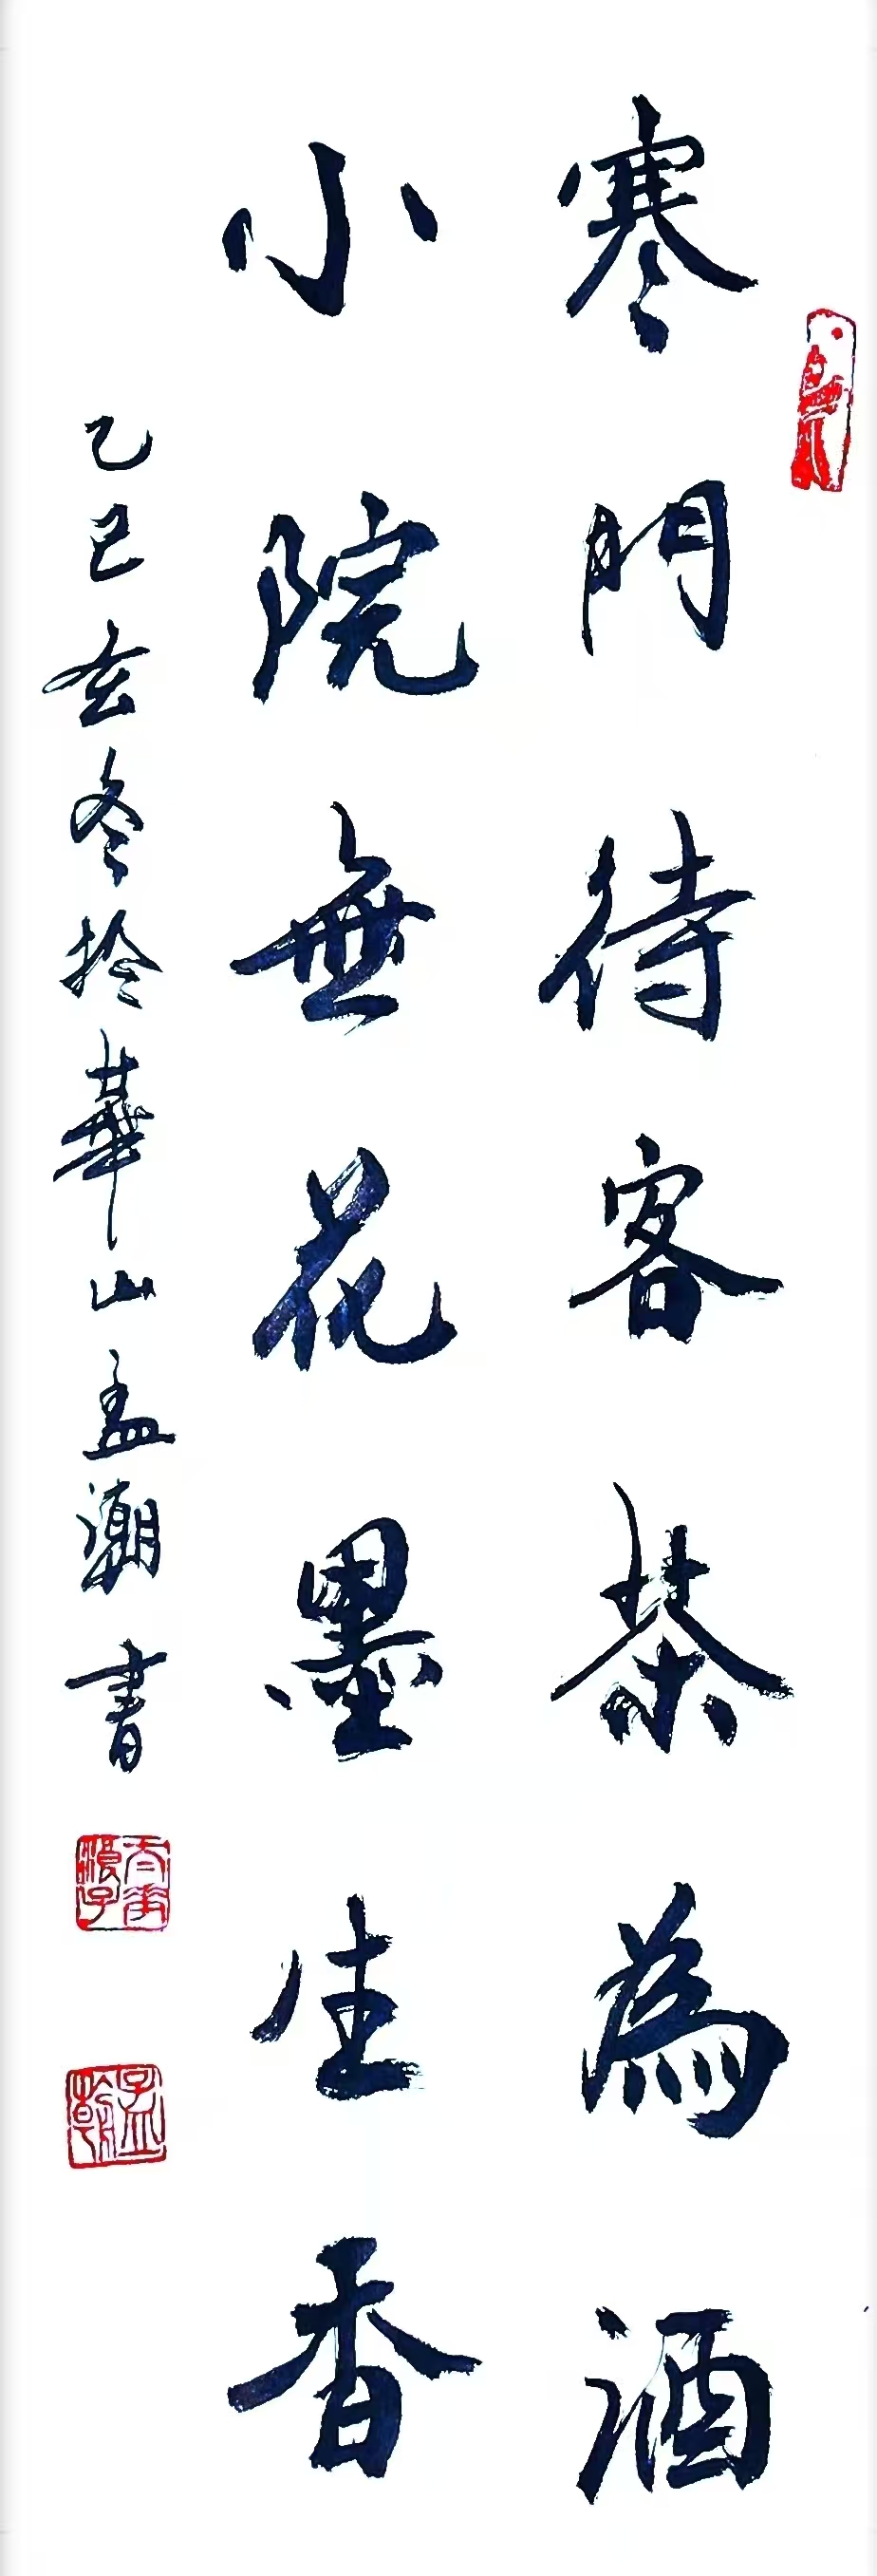 寒門待客茶為酒
小院無花墨生香
乙巳玄冬於華山孟潮書